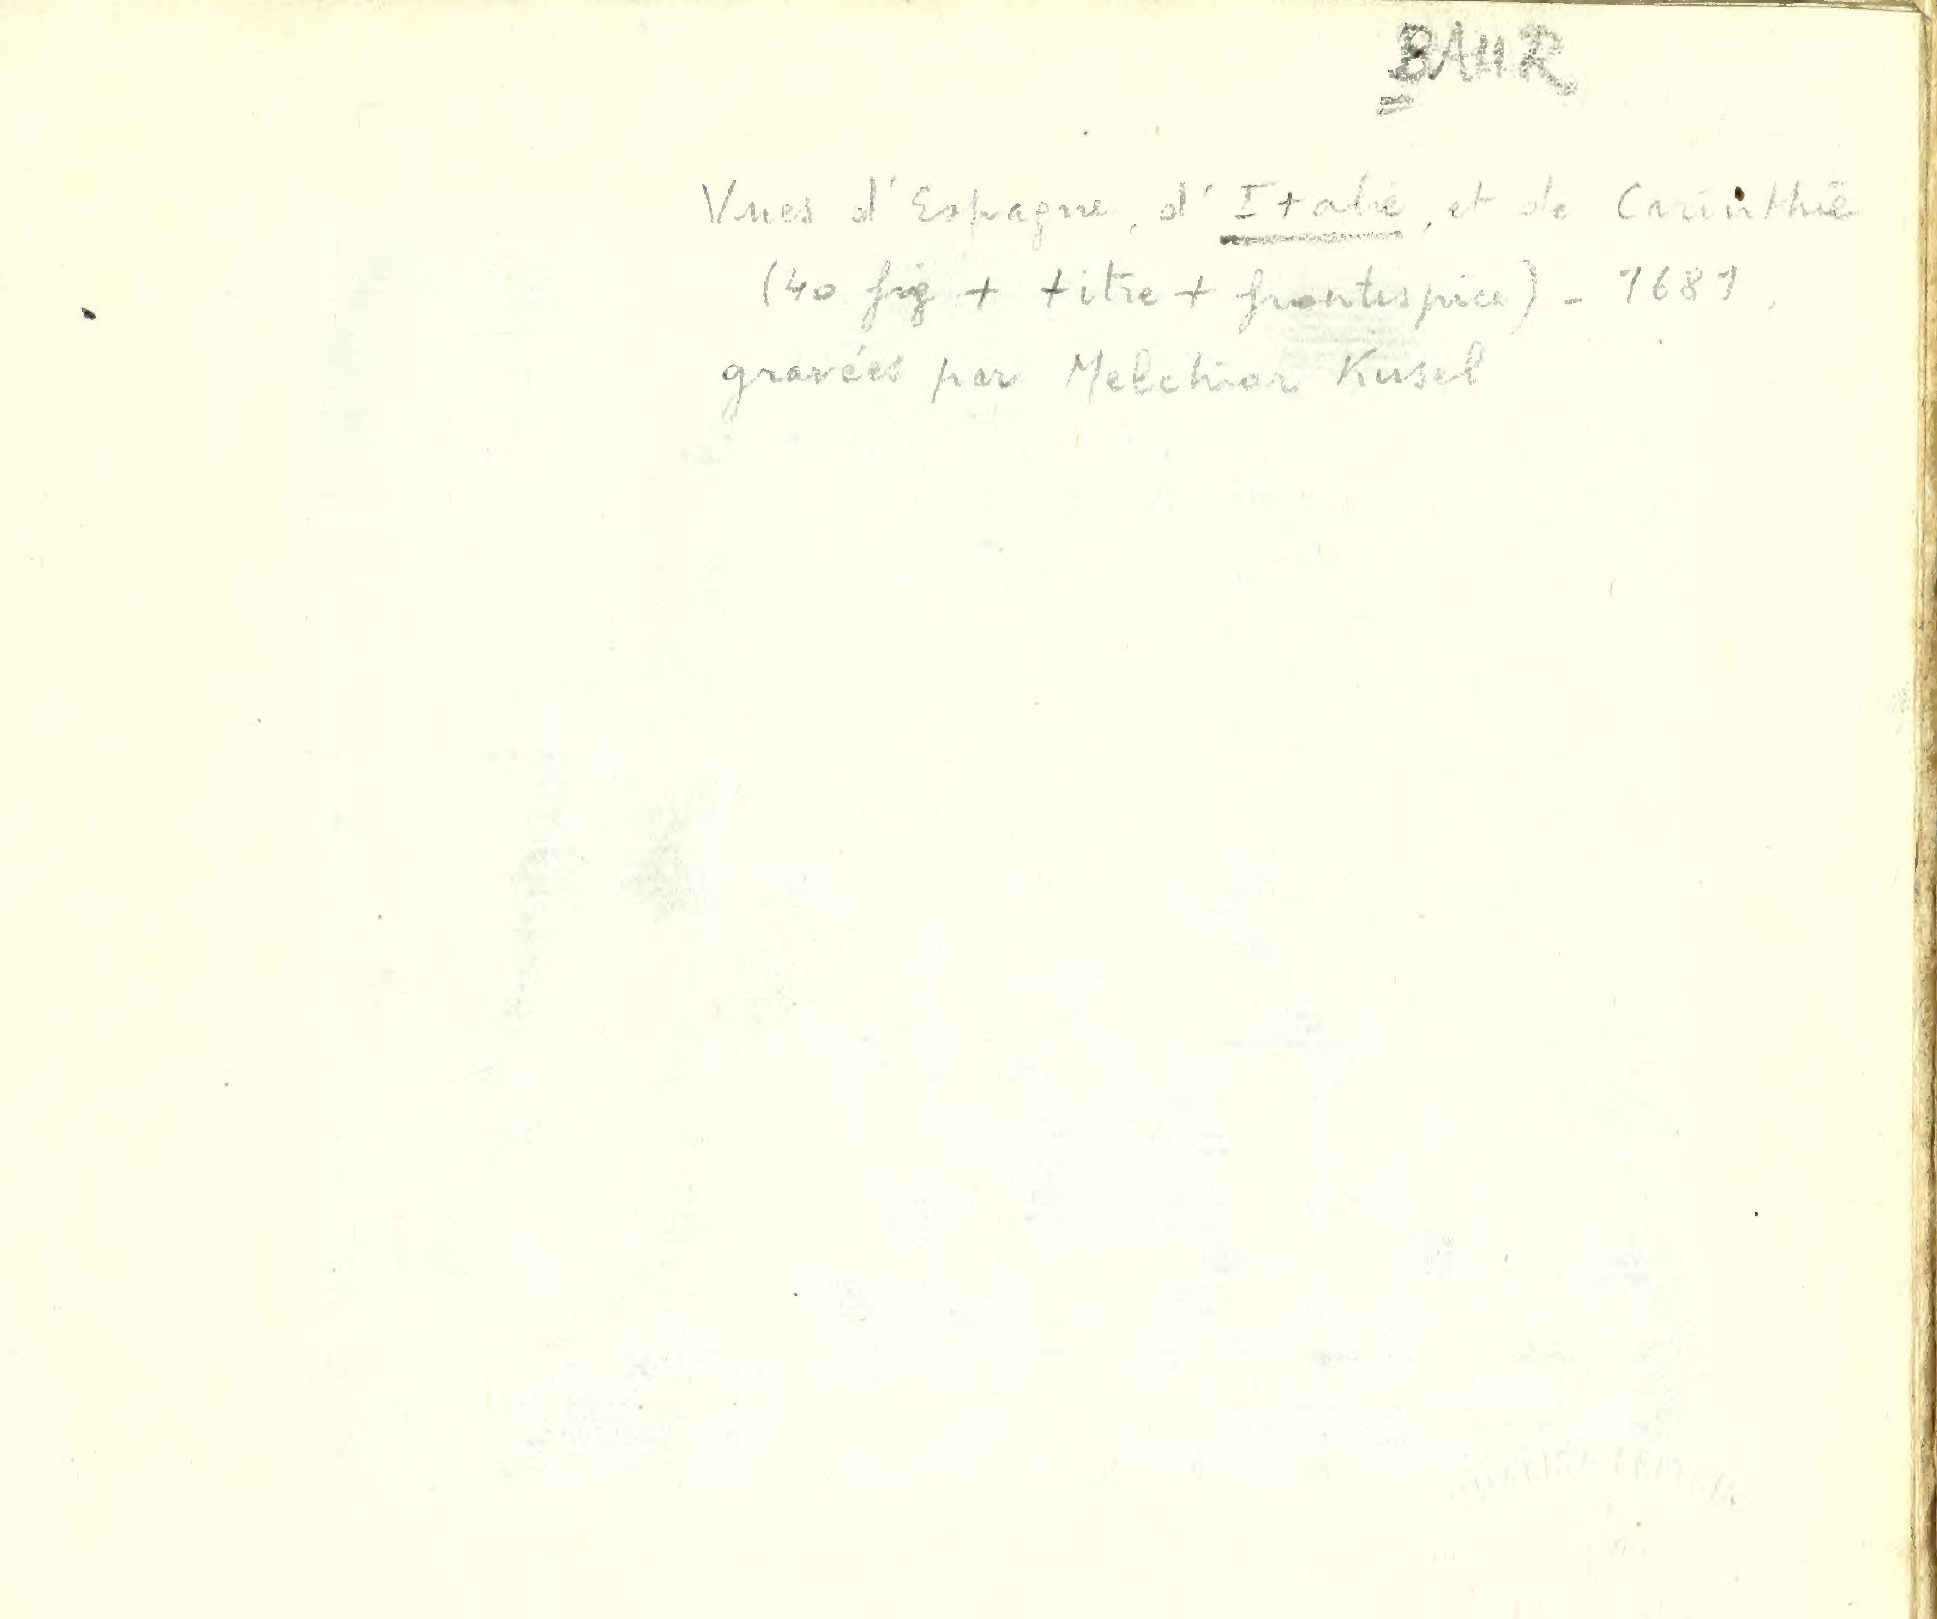 BAUR
Vues d'Espagne, d'Italie, et de Carinthie
(40 fig + titre + frontispice) - 1681.
gravées par Melchior Kusel